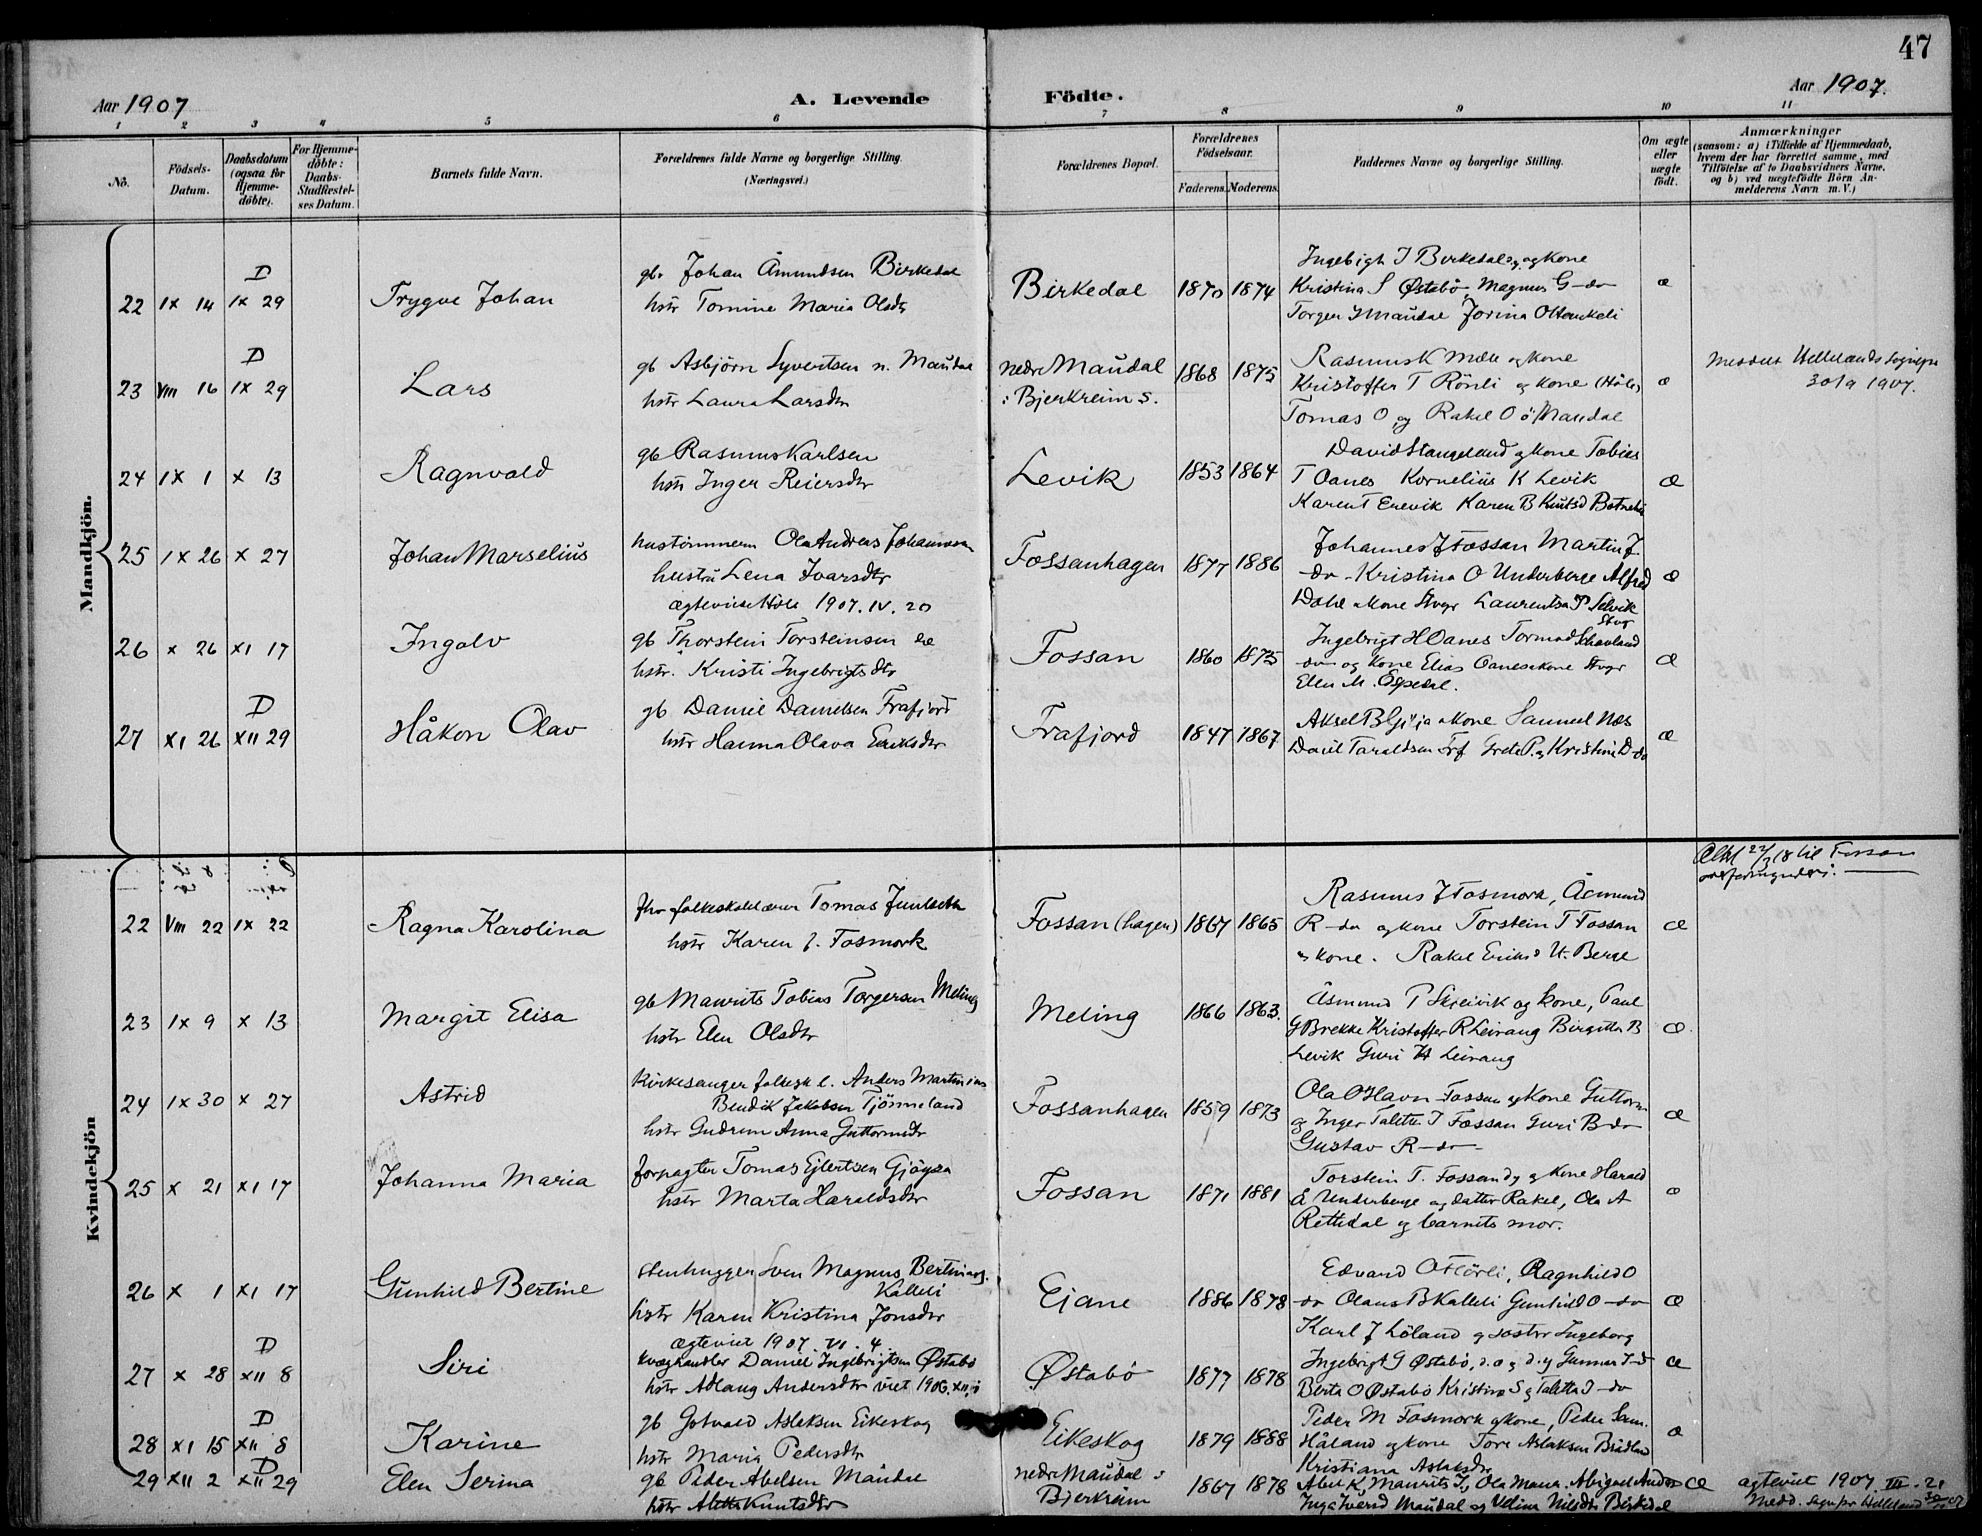 47
Aar 1907
A. Levende Födte.
Aar 1907.
1 2 3 4 5 6 7 8 9 10 11
No.
Födsels-Datum.
Daabsdatum (ogsaa for Hjemme-döbte).
For Hjemme-döbte: Daabs-Stadfæstel-ses Datum.
Barnets fulde Navn.
Forældrenes fulde Navne og borgerlige Stilling.
(Næringsvei.)
Forældrenes Bopæl.
Forældrenes Födselsaar.
Faderens. Moderens.
Faddernes Navne og borgerlige Stilling.
Om ægte eller uægte födt.
Anmærkninger
(saasom: a) i Tilfælde af Hjemmedaab,
hvem der har forrettet samme, med
Tilföielse af to Daabsvidners Navne,
og b) ved uægtefödte Börn An-
melderens Navn m.V.)
Mandkjön.
22 IX 14 D IX 29 Trygve Johan
gb. Johan Åmundsen Birkedal
hstr Tomine Maria Olsdtr
Birkedal 1870 1874
Birkedal og Kone
Kristina S Østabö, Magnus G-do
Torger I Maudal Jorina O
æ
23 VIII 16 D IX 29 Lars
gb Asbjörn Syvertsen n. Maudal
hstr Laura Larsdtr
nedre Maudal
: Bjerkreim s.
1868 1875
Rasmus K Mæle og kone
Kristoffer T Rönli og kone (Höle)
Tomas O og Rakel O ö Maudal
æ
Meddelt Hellelands Sognepr
30/9 1907.
24 IX 1 X 13 Ragnvald
gb Rasmus Karlsen
hstr Inger Reiersdtr
Levik 1853 1864
David Stangeland og kone Tobias
T Oanes Kornelius K Levik
Karen T Erevik Karen B Knutsd
æ
25 IX 26 X 27 Johan Marselius
hustömmerm Ola Andreas Johannesen
hustru Lena Ivarsdtr
ægteviet Höle 1907.IV.20
Fossanhagen 1877 1886
Johannes J Fossan Martin J
-do- Kristina O Underberge Alfred
Dahl & Kone Stvgr Laurentsa P Selvik
Stvgr
æ
26 X 26 XI 17 Ingolv
gb Thorstein Torsteinsen
hstr. Kristi Ingebrigtsdtr
Fossan 1860 1875
Ingebrigt H Oanes Tormod Schavland
-do- og Kone Elias Oanes & kone Stvgr
Elen M. Espedal.
æ
27 XI 26 D XII 29 Håkon Olav
gb Daniel Danielsen Frafjord
hstr Hanna Olava Eriksdtr
Frafjord 1847 1867
Aksel B Giljja & Kone Samuel Næs
Daniel Taraldsen Frf Grete P. og Kristine D-do
æ
Kvindekjön
22 VIII 22 IX 22 Ragna Karolina
fhv folkeskolelærer Tomas
hstr Karen J. Fosmork
Fossan (hagen) 1867 1865
Rasmus J Fosmork, Åsmund
R-do og kone Torstein T Fossan
og kone. Rakel Eriksd U. Berge
æ
22/3 18 til Fossan
23 IX 9 X 13 Margit Elisa
gb Maurits Tobias Torgersen Meling
hstr Elen Olsdtr
Meling 1866 1863.
Åsmund P Skreivik og kone, Paul
G Brekke Kristoffer R Leirang Birgitta B
Levik Guri H Leirang
æ
24 IX 30 X 27 Astrid
Kirkesanger folkesk l. Anders Martinius
Bendik Jakobsen Tjörneland
hstr Gudrun Anna Guttormsdtr
Fossanhagen 1859 1873
Ola O Havn Fossan og Kone Guttorm
og Inger Talette T Fossan Guri B-do
Gustav R-do-
æ
25 X 21 XI 17 Johanna Maria
forpagter Tomas Ejlertsen Gjöysa
hstr Marta Haraldsdtr
Fossan 1871 1881
Torstein T. Fossan og Kone Harald
E Underberge og datter Rakel, Ola A
Rettedal og barnets mor.
æ
26 X 1 XI 17 Gunhild Bertine
stenhugger Sven Magnus Bertinius.
Kalleli
hstr Karen Kristina Jonsdtr
ægteviet 1907. VI. 4
Eiane 1886 1878
Edvard O Hörli, Ragnhild O
-do Olaus B Kalleli Gunhild O-do
Karl J Löland og söster Ingeborg
æ
27 X 28 D XII 8 Siri
kvæghandler Daniel Ingebrigtsen Østabö
hstr Adlaug Andersdtr viet 1906.XII.
Østabö 1877 1878
Ingebrigt G Østabö, d.æ og d.y Gunnar I-d
Berta O Østabö Kristine S og Taletta I-do
æ
28 XI 15 D XII 8 Karine
gb Gotvald Aslaksen Eikeskog
hstr Maria Pedersdtr
Eikeskog 1879 1888
Peder M Fosmork og kone, Peder Sam.
Håland og kone Tore Aslaksen Brådland
Kristiana Aslaksdtr
æ
29 XII 2 D XII 29 Elen Serina
gb Peder Abelsen Maudal
hstr Alette Knutsdtr
nedre Maudal :
Bjerkreim
1867 1878
Abel K, Maurits I, Ola Mana. Abigael Anders
Inga Iversd Maudal og Veline Nilsdtr Birkedal
æ
ægteviet 1907 III. 21
Medd. sognepr Helleland